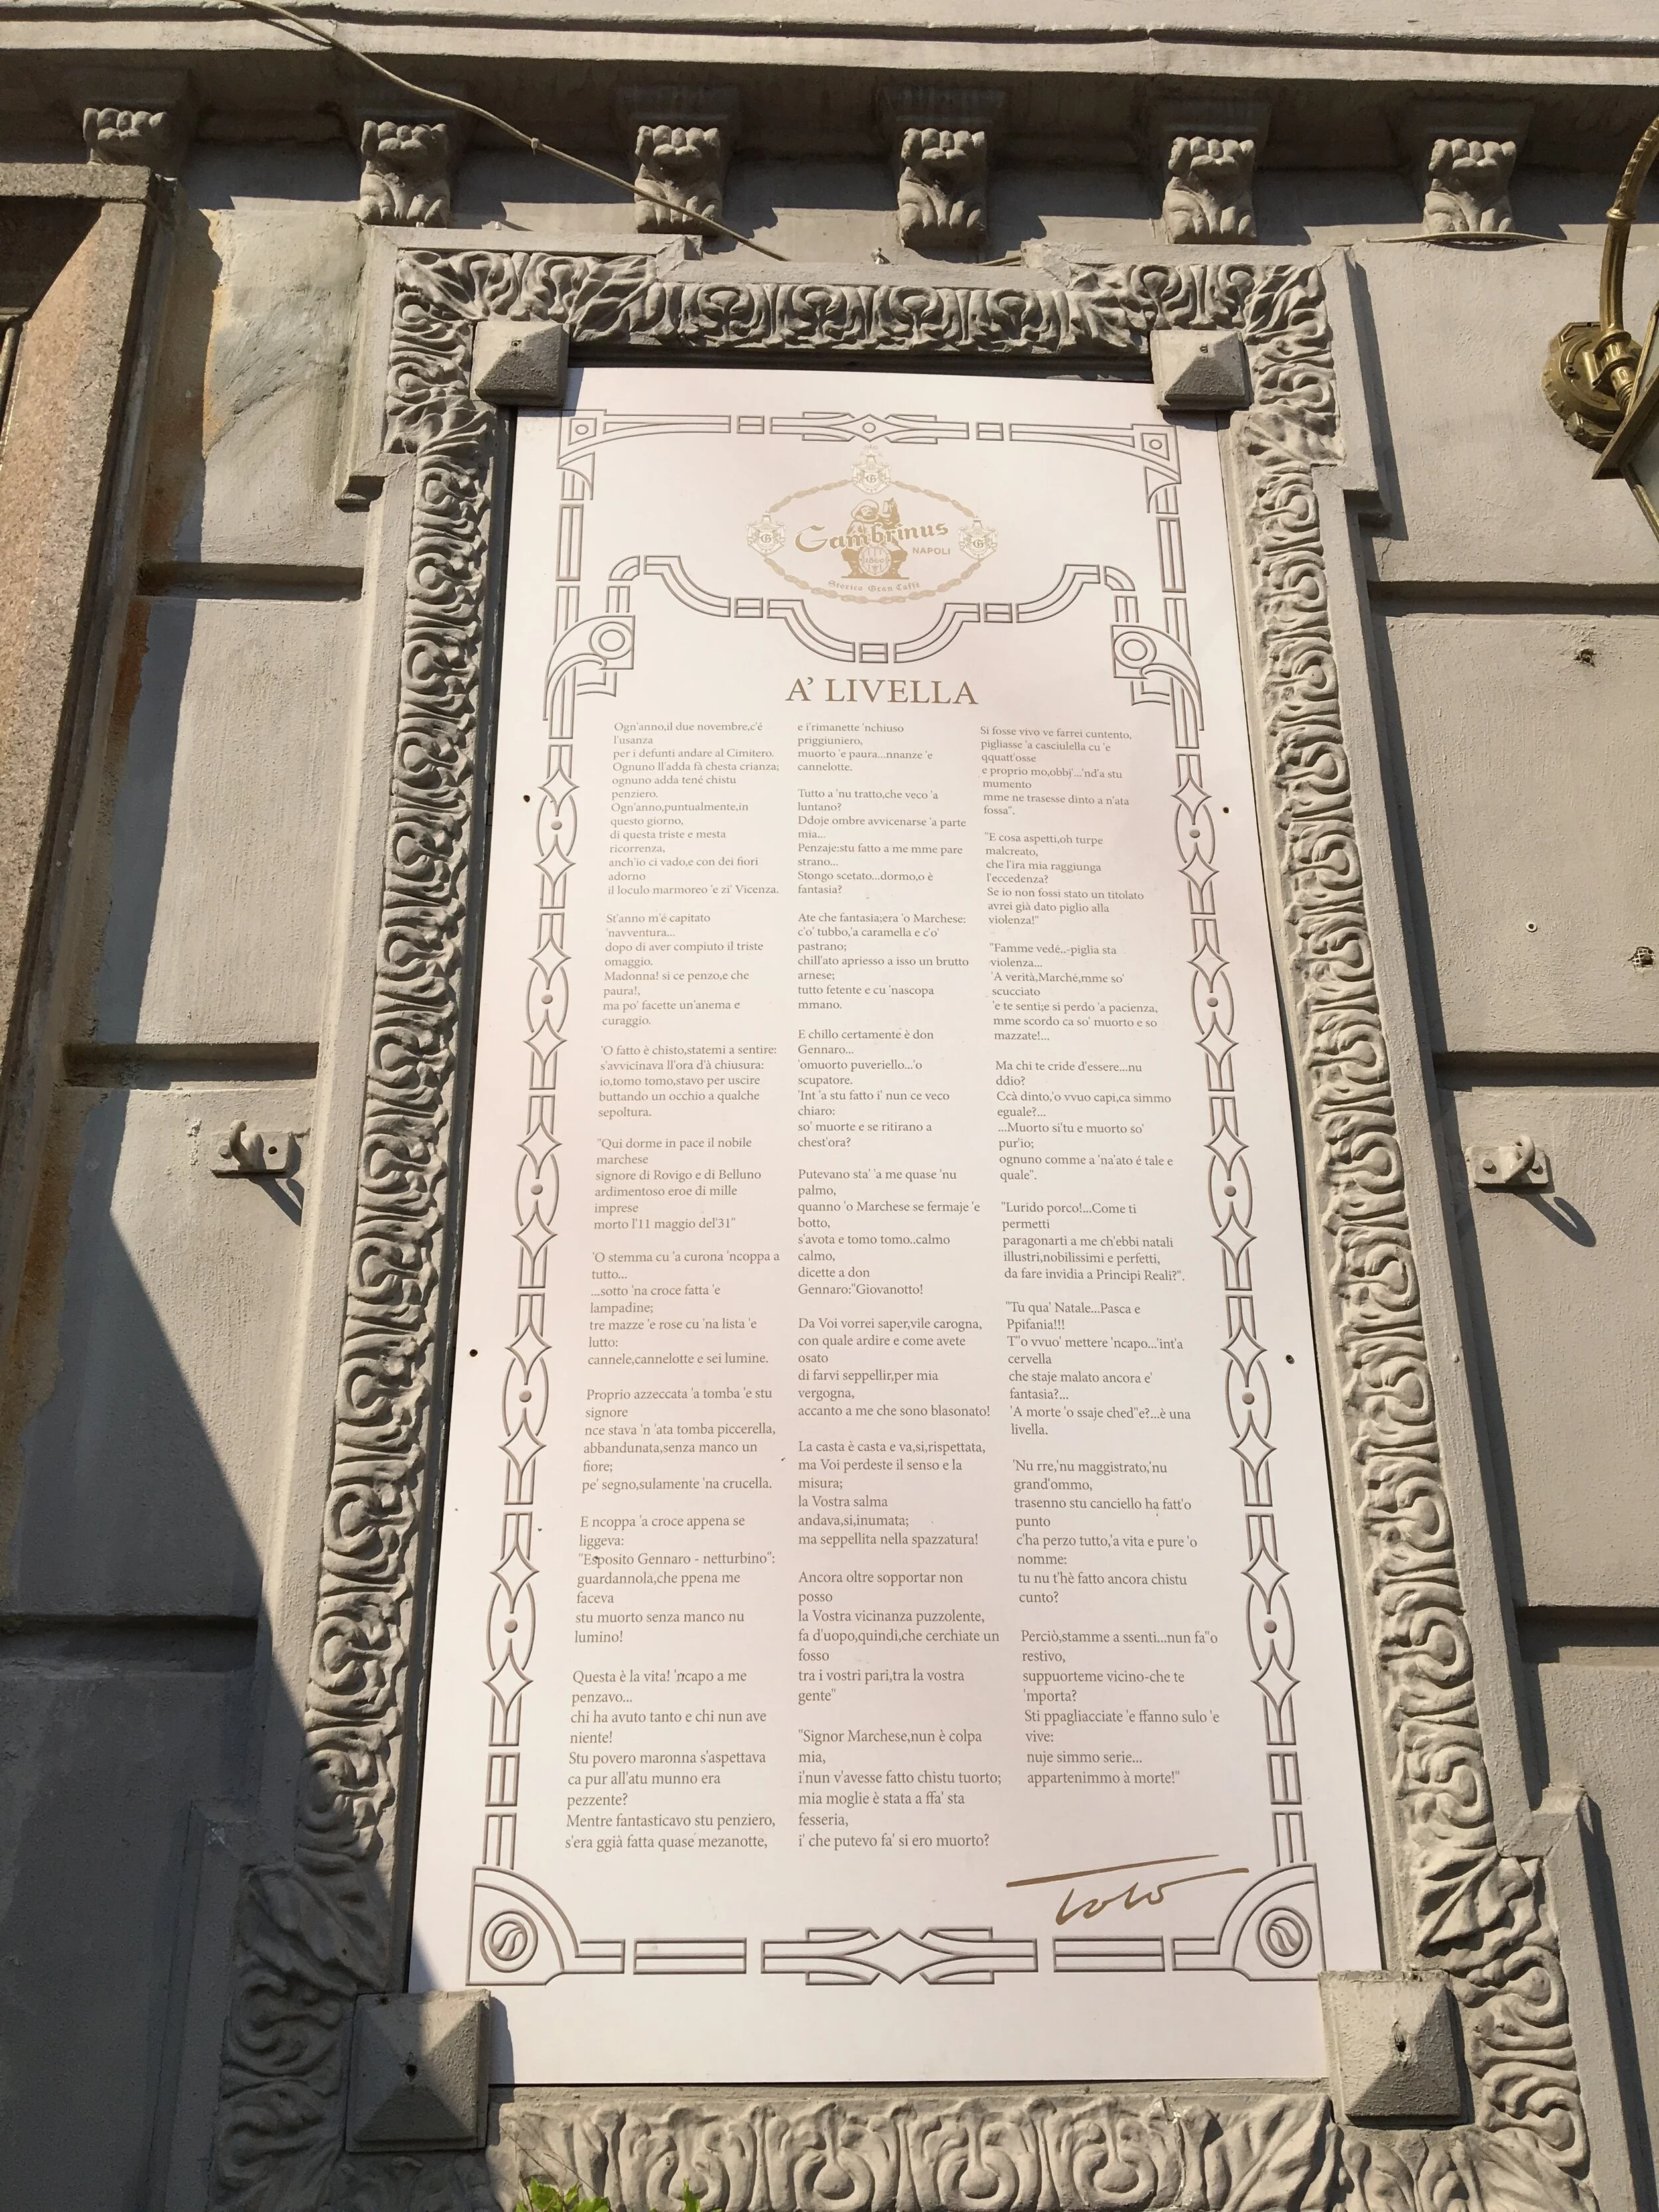 Gambrinus
NAPOLI
1860
Storico Gran Caffè
A' LIVELLA
Ogn'anno,il due novembre,c'é
l'usanza
per i defunti andare al Cimitero.
Ognuno ll'adda fà chesta crianza;
ognuno adda tené chistu
penziero.
Ogn'anno,puntualmente,in
questo giorno,
di questa triste e mesta
ricorrenza,
anch'io ci vado,e con dei fiori
adorno
il loculo marmoreo 'e zi' Vicenza.
St'anno m'é capitato
'navventura...
dopo di aver compiuto il triste
omaggio.
Madonna! si ce penzo,e che
paura!,
ma po' facette un'anema e
curaggio.
'O fatto è chisto,statemi a sentire:
s'avvicinava ll'ora d'à chiusura:
io,tomo tomo,stavo per uscire
buttando un occhio a qualche
sepoltura.
"Qui dorme in pace il nobile
marchese
signore di Rovigo e di Belluno
ardimentoso eroe di mille
imprese
morto l'11 maggio del'31"
'O stemma cu 'a curona 'ncoppa a
tutto...
...sotto 'na croce fatta 'e
lampadine;
tre mazze 'e rose cu 'na lista 'e
lutto:
cannele,cannelotte e sei lumine.
Proprio azzeccata 'a tomba 'e stu
signore
nce stava 'n 'ata tomba piccerella,
abbandunata,senza manco un
fiore;
pe' segno,sulamente 'na crucella.
E ncoppa 'a croce appena se
liggeva:
"Esposito Gennaro - netturbino":
guardannola,che ppena me
faceva
stu muorto senza manco nu
lumino!
Questa è la vita! 'ncapo a me
penzavo...
chi ha avuto tanto e chi nun ave
niente!
Stu povero maronna s'aspettava
ca pur all'atu munno era
pezzente?
Mentre fantasticavo stu penziero,
s'era ggià fatta quase mezanotte,
e i'rimanette 'nchiuso
priggiuniero,
muorto 'e paura...nnanze 'e
cannelotte.
Tutto a 'nu tratto,che veco 'a
luntano?
Ddoje ombre avvicenarse 'a parte
mia...
Penzaje:stu fatto a me mme pare
strano...
Stongo scetato...dormo,o è
fantasia?
Ate che fantasia;era 'o Marchese:
c'o' tubbo,'a caramella e c'o'
pastrano;
chill'ato apriesso a isso un brutto
arnese;
tutto fetente e cu 'nascopa
mmano.
E chillo certamente è don
Gennaro...
'omuorto puveriello...'o
scupatore.
'Int 'a stu fatto i' nun ce veco
chiaro:
so' muorte e se ritirano a
chest'ora?
Putevano sta' 'a me quase 'nu
palmo,
quanno 'o Marchese se fermaje 'e
botto,
s'avota e tomo tomo..calmo
calmo,
dicette a don
Gennaro:"Giovanotto!
Da Voi vorrei saper,vile carogna,
con quale ardire e come avete
osato
di farvi seppellir,per mia
vergogna,
accanto a me che sono blasonato!
La casta è casta e va,si,rispettata,
ma Voi perdeste il senso e la
misura;
la Vostra salma
andava,si,inumata;
ma seppellita nella spazzatura!
Ancora oltre sopportar non
posso
la Vostra vicinanza puzzolente,
fa d'uopo,quindi,che cerchiate un
fosso
tra i vostri pari,tra la vostra
gente"
"Signor Marchese,nun è colpa
mia,
i'nun v'avesse fatto chistu tuorto;
mia moglie è stata a ffa' sta
fesseria,
i' che putevo fa' si ero muorto?
Si fosse vivo ve farrei cuntento,
pigliasse 'a casciulella cu 'e
qquatt'osse
e proprio mo,obbj'...'nd'a stu
mumento
mme ne trasesse dinto a n'ata
fossa".
"E cosa aspetti,oh turpe
malcreato,
che l'ira mia raggiunga
l'eccedenza?
Se io non fossi stato un titolato
avrei già dato piglio alla
violenza!"
"Famme vedé..-piglia sta
violenza...
'A verità,Marché,mme so'
scucciato
'e te senti;e si perdo 'a pacienza,
mme scordo ca so' muorto e so
mazzate!...
Ma chi te cride d'essere...nu
ddio?
Ccà dinto,'o vvuo capi,ca simmo
eguale?...
...Muorto si'tu e muorto so'
pur'io;
ognuno comme a 'na'ato é tale e
quale".
"Lurido porco!...Come ti
permetti
paragonarti a me ch'ebbi natali
illustri,nobilissimi e perfetti,
da fare invidia a Principi Reali?".
"Tu qua' Natale...Pasca e
Ppifania!!!
T''o vvuo' mettere 'ncapo...'int'a
cervella
che staje malato ancora e'
fantasia?...
'A morte 'o ssaje ched''e?...è una
livella.
'Nu rre,'nu maggistrato,'nu
grand'ommo,
trasenno stu canciello ha fatt'o
punto
c'ha perzo tutto,'a vita e pure 'o
nomme:
tu nu t'hè fatto ancora chistu
cunto?
Perciò,stamme a ssenti...nun fa''o
restivo,
suppuorteme vicino-che te
'mporta?
Sti ppagliacciate 'e ffanno sulo 'e
vive:
nuje simmo serie...
appartenimmo à morte!"
Totò